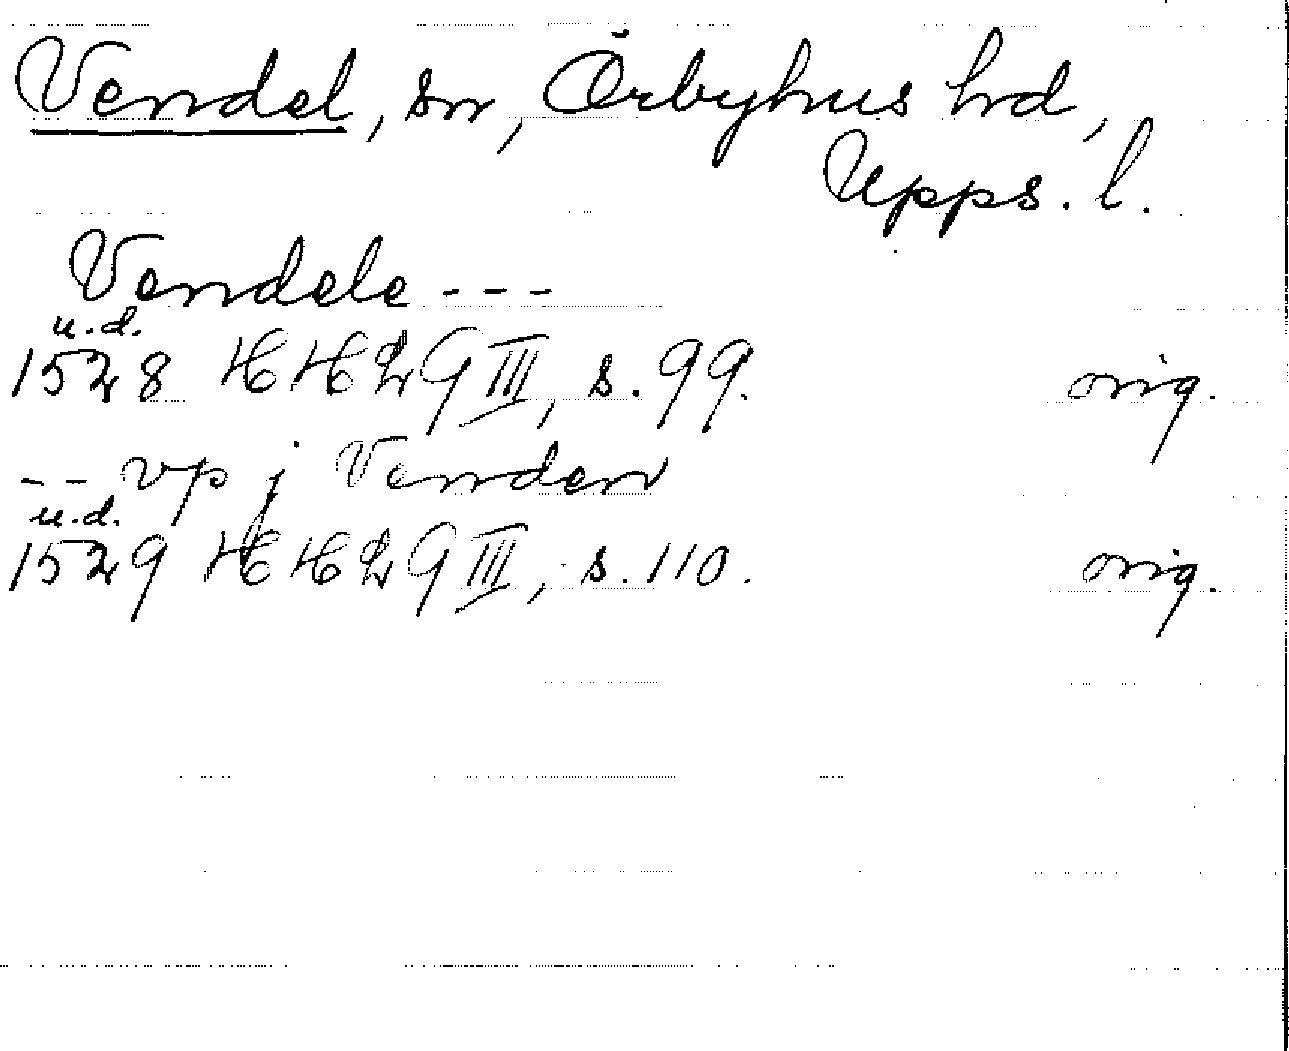 Vendel, sn, Örbyhus hd,
Upps. l.
Vendele ---
u.d.
1528 HH29III, s. 99. orig.
-- vp j Venden
u.d.
1529 HH29III, s. 110. orig.